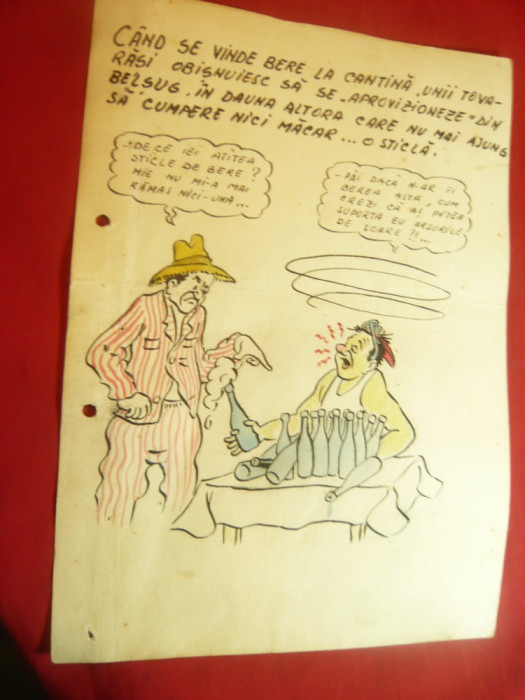 CÂND SE VINDE BERE LA CANTINĂ, UNII TOVA-
RĂSI OBIȘNUIESC SĂ SE „APROVIZIONEZE” DIN
BELȘUG, ÎN DAUNA ALTORA CARE NU MAI AJUNG
SĂ CUMPERE NICI MĂCAR... O STICLĂ.
- DE CE IEI ATÎTEA
STICLE DE BERE?
MIE NU MI-A MAI
RĂMAS NICI-UNA...
- PĂI DACĂ N-AR FI
BEREA ASTA, CUM
CREZI CĂ AȘ PUTEA
SUPORTA EU ARSURILE
DE SOARE ?!...